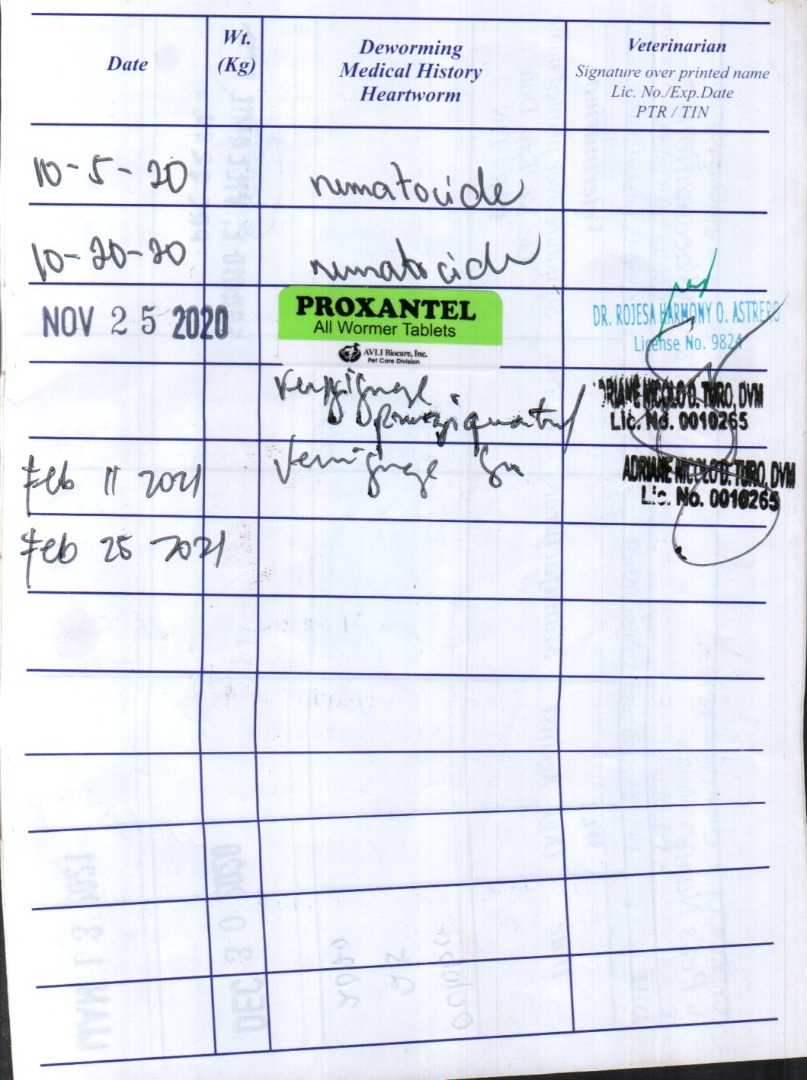 Date
Wt.
(Kg)
Deworming
Medical History
Heartworm
Veterinarian
Signature over printed name
Lic. No./Exp.Date
PTR / TIN
10-5-20 numatocide
10-20-20 numatocide
NOV 25 2020
PROXANTEL
All Wormer Tablets
AVLI Biocare, Inc.
Pet Care Division
DR. ROJESA HARMONY O. ASTRERO
License No. 9824
ADRIANE NICOLO D. TURO, DVM
Lic. No. 0010265
Feb 11 2021
ADRIANE NICOLO D. TURO, DVM
Lic. No. 0010265
Feb 25 2021